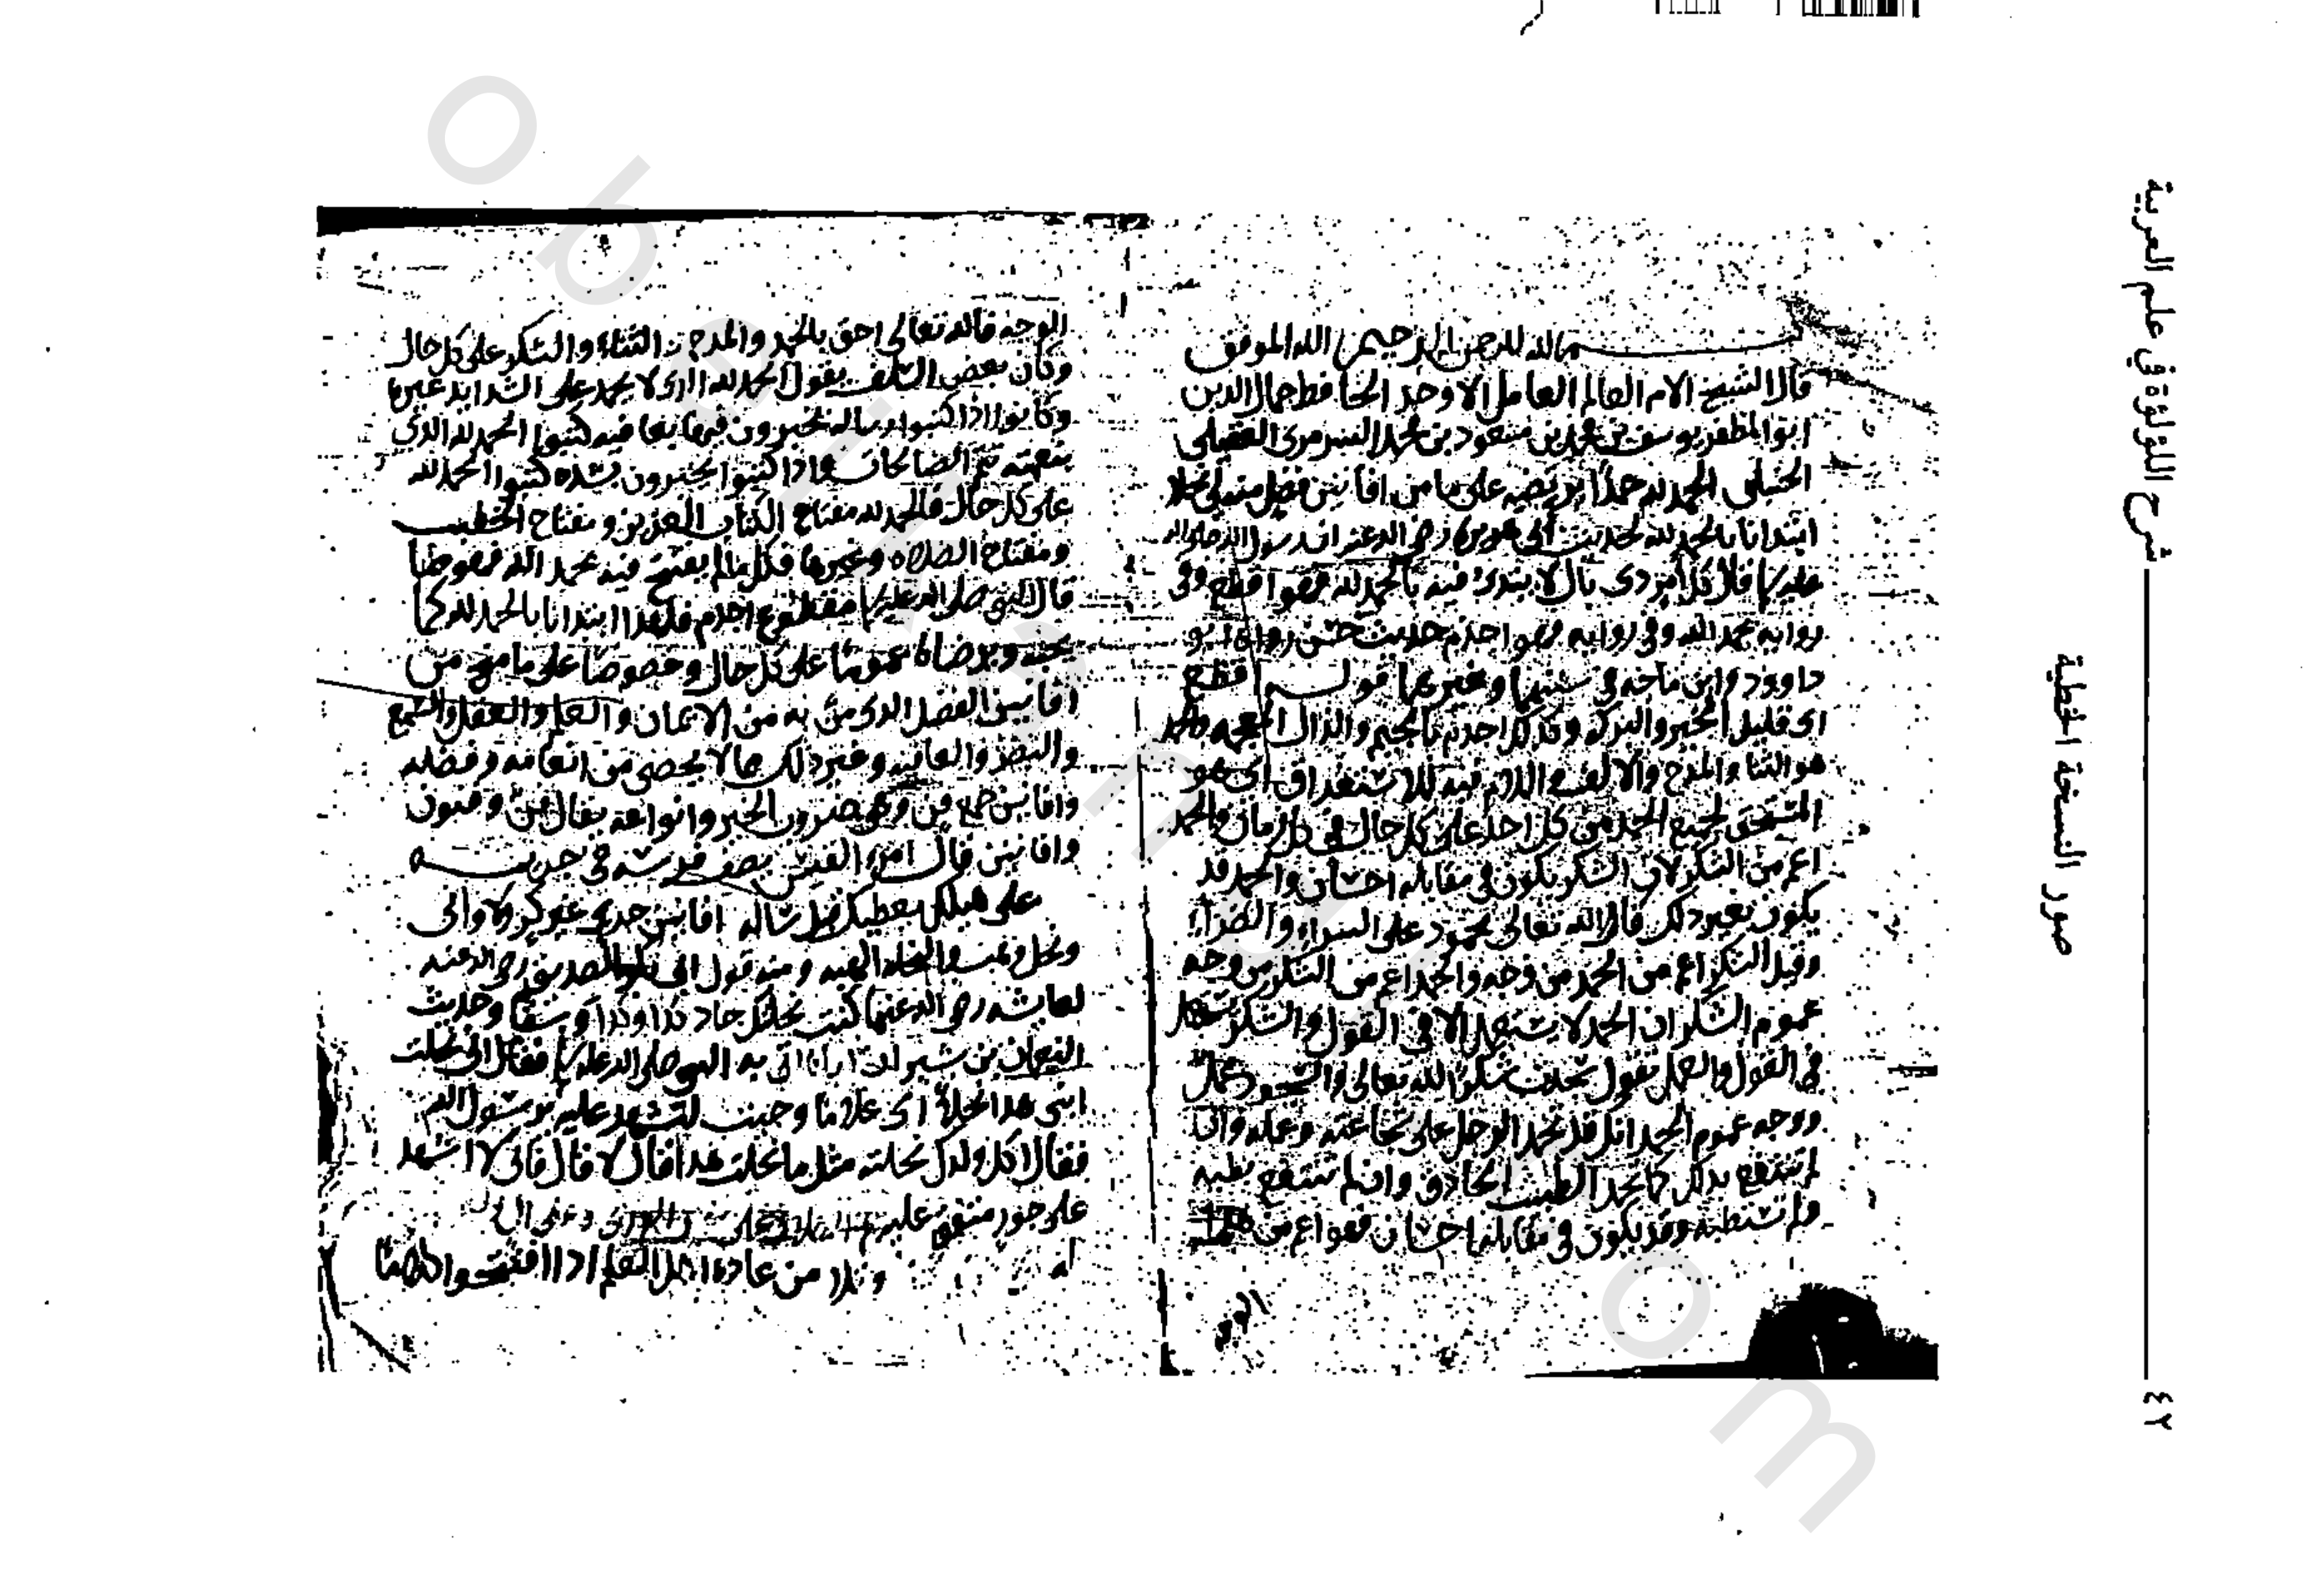 شرح اللؤلؤة في علم العربية
٤٧
صور النسخة الخطية
بسم الله الرحمن الرحيم الله الموفق
قال الشيخ الامام العالم العامل الاوحد الحافظ جمال الدين
ابو المظفر يوسف بن محمد بن مسعود بن محمد السرمري العقيلي
الحنبلي الحمد لله حمدا يرتضيه على ما من افانين فضل منه لي
ابتدانا بالحمد لله لحديث ابي هريرة رضي الله عنه ان رسول الله صلى الله
عليه قال كل امر ذي بال لا يبتدئ فيه بالحمد لله فهو اقطع وفي
رواية بحمد الله وفي روايه فهو اجذم حديث حسن رواه ابو
داوود وابن ماجه في سننهما وغيرهما قوله اقطع
اي قليل الخير والبركه وكذلك اجذم بالجيم والذال المعجمه والحمد
هو الثنا والمدح والالف واللام فيه للاستغراق اي هو
المستحق لجميع الحمد من كل احد على كل حال في كل زمان والحمد
اعم من الشكر لان الشكر يكون في مقابله احسان والحمد قد
يكون بغير ذلك فالله تعالى محمود على السراء والضراء
وقيل الشكر اعم من الحمد من وجه والحمد اعم من الشكر من وجه
عموم الشكر ان الحمد لا يستعمل الا في القول والشكر يستعمل
في القول والعمل تقول سجدت شكرا لله تعالى والسجود عمل
ووجه عموم الحمد انك قد تحمد الرجل على شجاعته وعمله وان
لم تنتفع بذلك كما تحمد الطبيب الحاذق وان لم تنتفع بطبه
ولم تستطبه وقد يكون في مقابله احسان فهو اعم من
الوجه
الوجه فالله تعالى احق بالحمد والمدح والثناء والشكر على كل حال
وكان بعض السلف يقول الحمد لله الذي لا يحمد على الشدايد غيره
وكانوا اذا كتبوا رساله يخبرون فيها بعافيه كتبوا الحمد لله الذي
بنعمته تتم الصالحات واذا كتبوا يخبرون بشده كتبوا الحمد لله
على كل حال فالحمد لله مفتاح الكتاب العزيز ومفتاح الخطب
ومفتاح الصلاه وغيرها فكل ما لم يفتتح فيه بحمد الله فهو كما
قال النبي صلى الله عليه مقطوع اجذم فلهذا ابتدانا بالحمد لله كما
يحبه ويرضاه عموما على كل حال وخصوصا على ما من من
افانين الفضل الذي من به من الايمان والعلم والعقل والسمع
والبصر والعافيه وغير ذلك مما لا يحصى من انعامه وفضله
وافانين جمع فن وهي ضروب الخير وانواعه يقال فن وفنون
وافانين قال امرؤ القيس يصف فرسه في جريه
على هيكل يعطيك قبل سؤاله افانين جري غير كز ولا واني
ونحل وهب والنحله الهبه ومنه قول ابي بكر الصديق رضي الله عنه
لعايشه رضي الله عنها كنت نحلتك جاد كذا وكذا وسقا وحديث
النعمان بن بشير ان اباه اتى به النبي صلى الله عليه فقال اني نحلت
ابني هذا نحلا اي غلاما وجيت لتشهد عليه يرسول الله
فقال اكل ولدك نحلته مثل ما نحلت هذا قال لا قال فاني لا اشهد
على جور متفق عليه
وكذا من عادة اهل العلم اذا افتتحوا